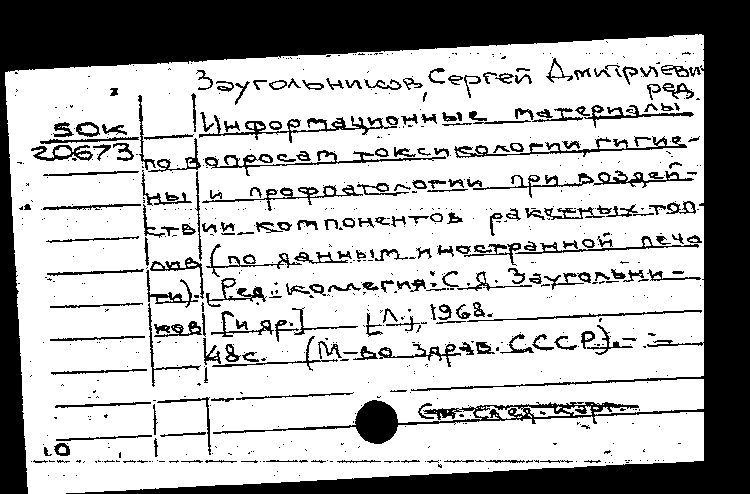 Заугольников, Сергей Дмитриевич
ред.
50К
20673
Информационные материалы
по вопросам токсикологии, гигие-
ны и профпатологии при воздей-
ствии компонентов ракетных топ-
лив (по данным иностранной печа
ти). [Ред. коллегия: С.Д. Заугольни-
ков [и др.] [Л.], 1968.
48с. (М-во здрав. СССР). - =
См. след. карт.
10